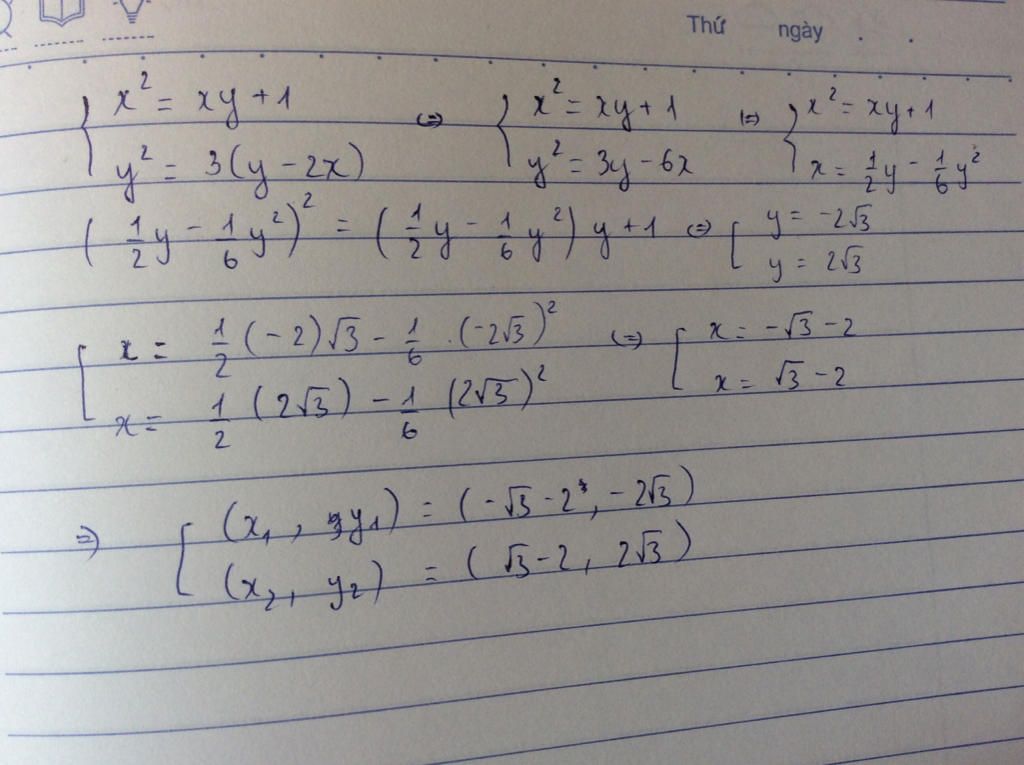 Thứ ngày . .
{ x² = xy + 1 ⇔ { x² = xy + 1 ⇔ { x² = xy + 1
y² = 3(y - 2x) y² = 3y - 6x x = 1/2 y - 1/6 y²
(1/2 y - 1/6 y²)² = (1/2 y - 1/6 y²) y + 1 ⇔ [ y = -2√3
y = 2√3
[ x = 1/2 (-2)√3 - 1/6 . (-2√3)² ⇔ [ x = -√3 - 2
x = 1/2 (2√3) - 1/6 (2√3)² x = √3 - 2
⇒ [ (x₁, y₁) = (-√3 - 2, -2√3)
(x₂, y₂) = (√3 - 2, 2√3)